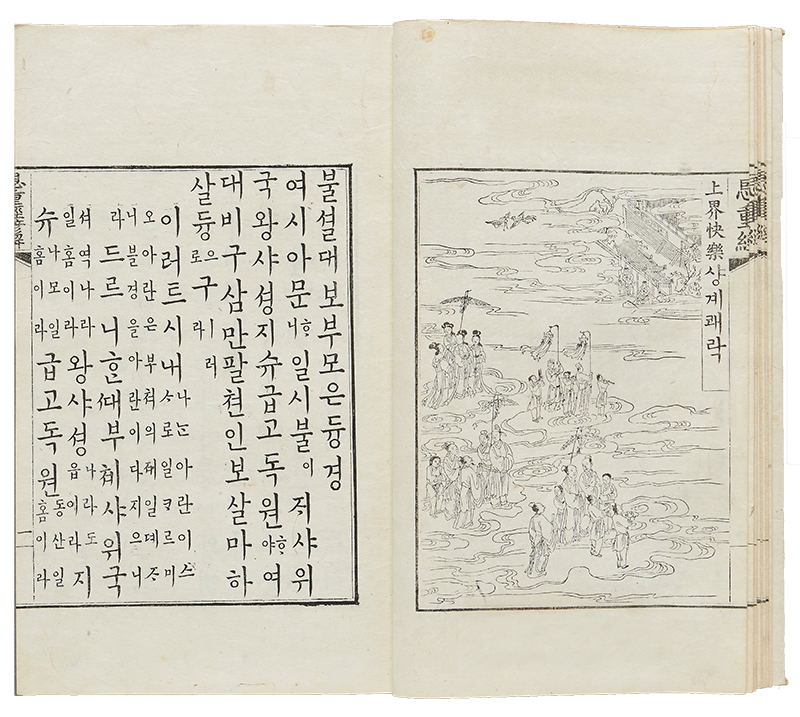 恩重經
上界快樂샹계쾌락
불셜대보부모은듕경
여시아문ᄒᆞ니일시불이ᄌᆡ샤위
국왕샤셩지슈급고독원ᄒᆞ야여
대비구삼만팔쳔인보살마하
살듕으로구ㅣ러라
이러트시내나ᄂᆞᆫ아란이스ᄉᆞ로일ᄏᆞᄅᆞ미
오아란은부쳐의뎨일뎨ᄌᆞ니불경을아란이다지으니
라드르니ᄒᆞᆫᄯᅢ부쳬샤위국
셔역나라일홈이라왕샤셩나라도읍이라지
슈나모일홈이라급고독원동산일홈이라
恩重經諺解